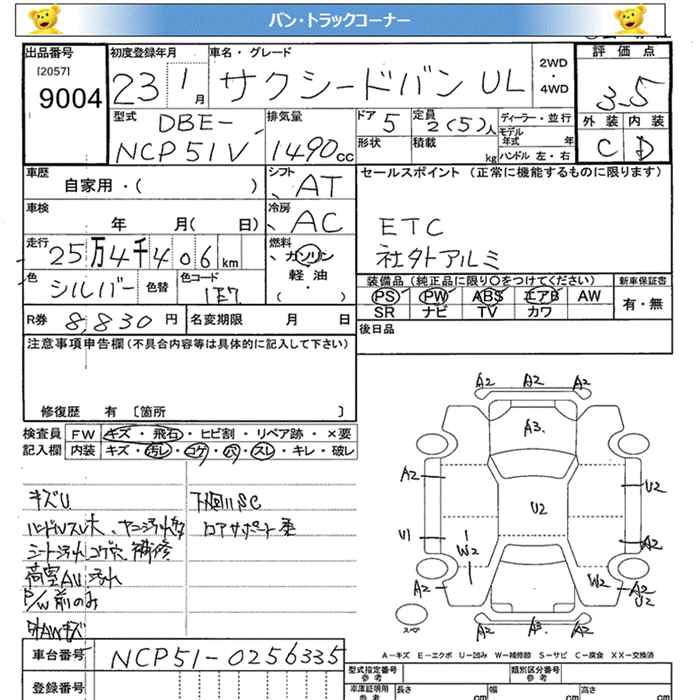 バン・トラックコーナー
出品番号 初度登録年月 車名・グレード 2WD ・ 4WD 評価点
[2057]
9004 23 1月 サクシードバン UL 3.5
型式 DBE- NCP51V 排気量 1490cc ドア 5 定員 2(5)人 ディーラー・並行 外装 内装
形状 積載 kg モデル年式 年 ハンドル 左・右 C D
車歴 自家用・( ) シフト AT セールスポイント (正常に機能するものに限ります)
車検 年 月( 日) 冷房 AC ETC
走行 25万4千406km 燃料 ガソリン 軽油 ・( ) 社外アルミ
色 シルバー 色替 色コード 1E7 装備品 (純正品に限り○をつけてください) 新車保証書
PS PW ABS エアB AW 有・無
SR ナビ TV カワ
R券 8,830円 名変期限 月 日 後日品
注意事項申告欄(不具合内容等は具体的に記入して下さい)
修復歴 有 〔箇所 〕
検査員 FW キズ・飛石・ヒビ割・リペア跡・×要
記入欄 内装 キズ・汚レ・コゲ・穴・スレ・キレ・破レ
キズU 下廻りSC
ハンドルスレ大、ヤニ汚れ
シート汚れ コゲ穴 補修
荷室AU 汚れ
P/W前のみ
外AWキズ
A2 A2 A2
A3
A2 U2 U2
U1 W2 A2
A2 W2 A2 U2
A2 A3 A2
スペア
A-キズ E-エクボ U-凹み W-補修跡 S-サビ C-腐食 XX-交換済
車台番号 NCP51-0256335
型式指定番号 参考 類別区分番号 参考
登録番号 車庫証明用 参考 長さ cm 幅 cm 高さ cm